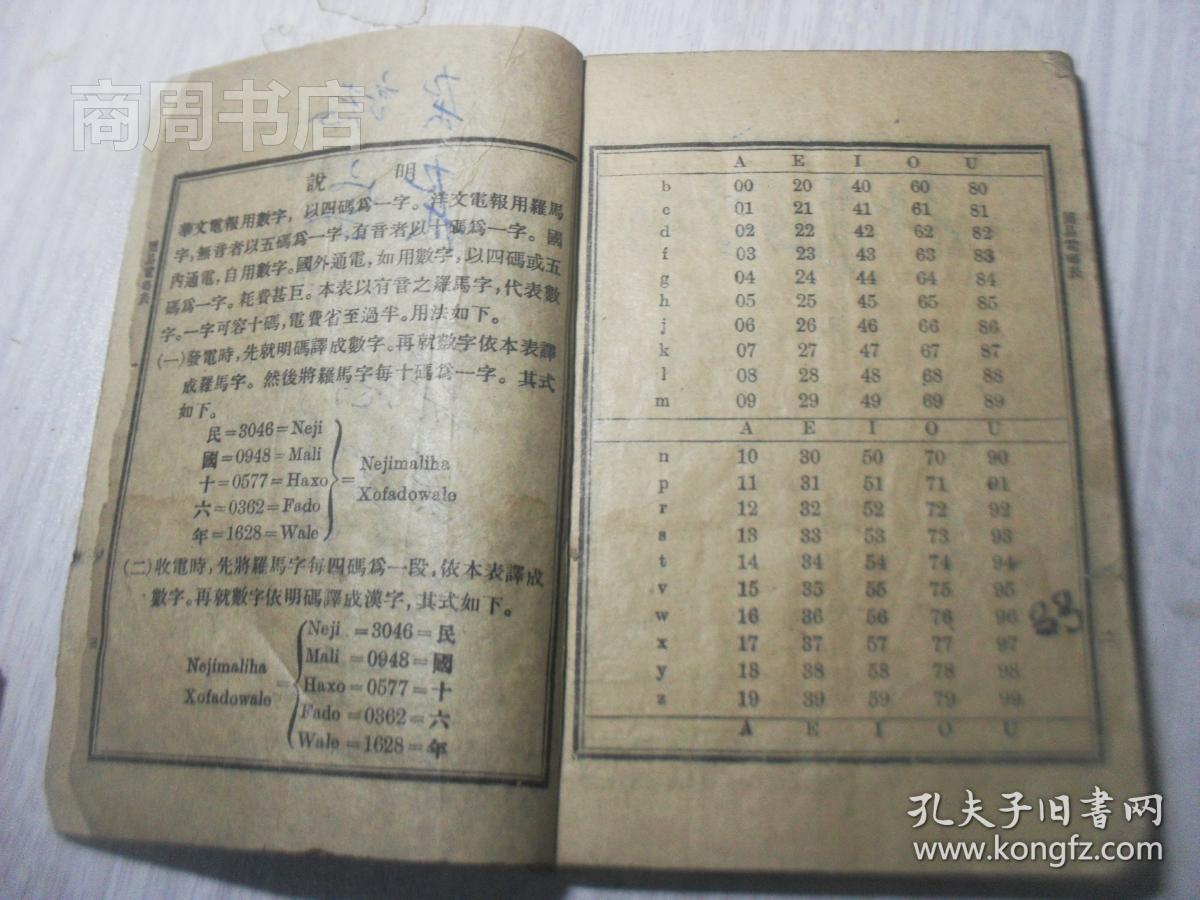 商周书店
說 明
華文電報用數字，以四碼爲一字。洋文電報用羅馬
字，無音者以五碼爲一字，有音者以十碼爲一字。國
內通電，自用數字。國外通電，如用數字，以四碼或五
碼爲一字。耗費甚巨。本表以有音之羅馬字，代表數
字。一字可容十碼，電費省至過半。用法如下。
(一)發電時，先就明碼譯成數字。再就數字依本表譯
成羅馬字。然後將羅馬字每十碼爲一字。其式
如下。
民=3046=Neji
國=0948=Mali
十=0577=Haxo
六=0362=Fado
年=1628=Walo
=
Nejimaliha
Xofadowalo
(二)收電時，先將羅馬字每四碼爲一段，依本表譯成
數字。再就數字依明碼譯成漢字，其式如下。
Nejimaliha
Xofadowalo
=
Neji=3046=民
Mali=0948=國
Haxo=0577=十
Fado=0362=六
Walo=1628=年
A E I O U
b 00 20 40 60 80
c 01 21 41 61 81
d 02 22 42 62 82
f 03 23 43 63 83
g 04 24 44 64 84
h 05 25 45 65 85
j 06 26 46 66 86
k 07 27 47 67 87
l 08 28 48 68 88
m 09 29 49 69 89
A E I O U
n 10 30 50 70 90
p 11 31 51 71 91
r 12 32 52 72 92
s 13 33 53 73 93
t 14 34 54 74 94
v 15 35 55 75 95
w 16 36 56 76 96
x 17 37 57 77 97
y 18 38 58 78 98
z 19 39 59 79 99
A E I O U
二
孔夫子旧书网
www.kongfz.com